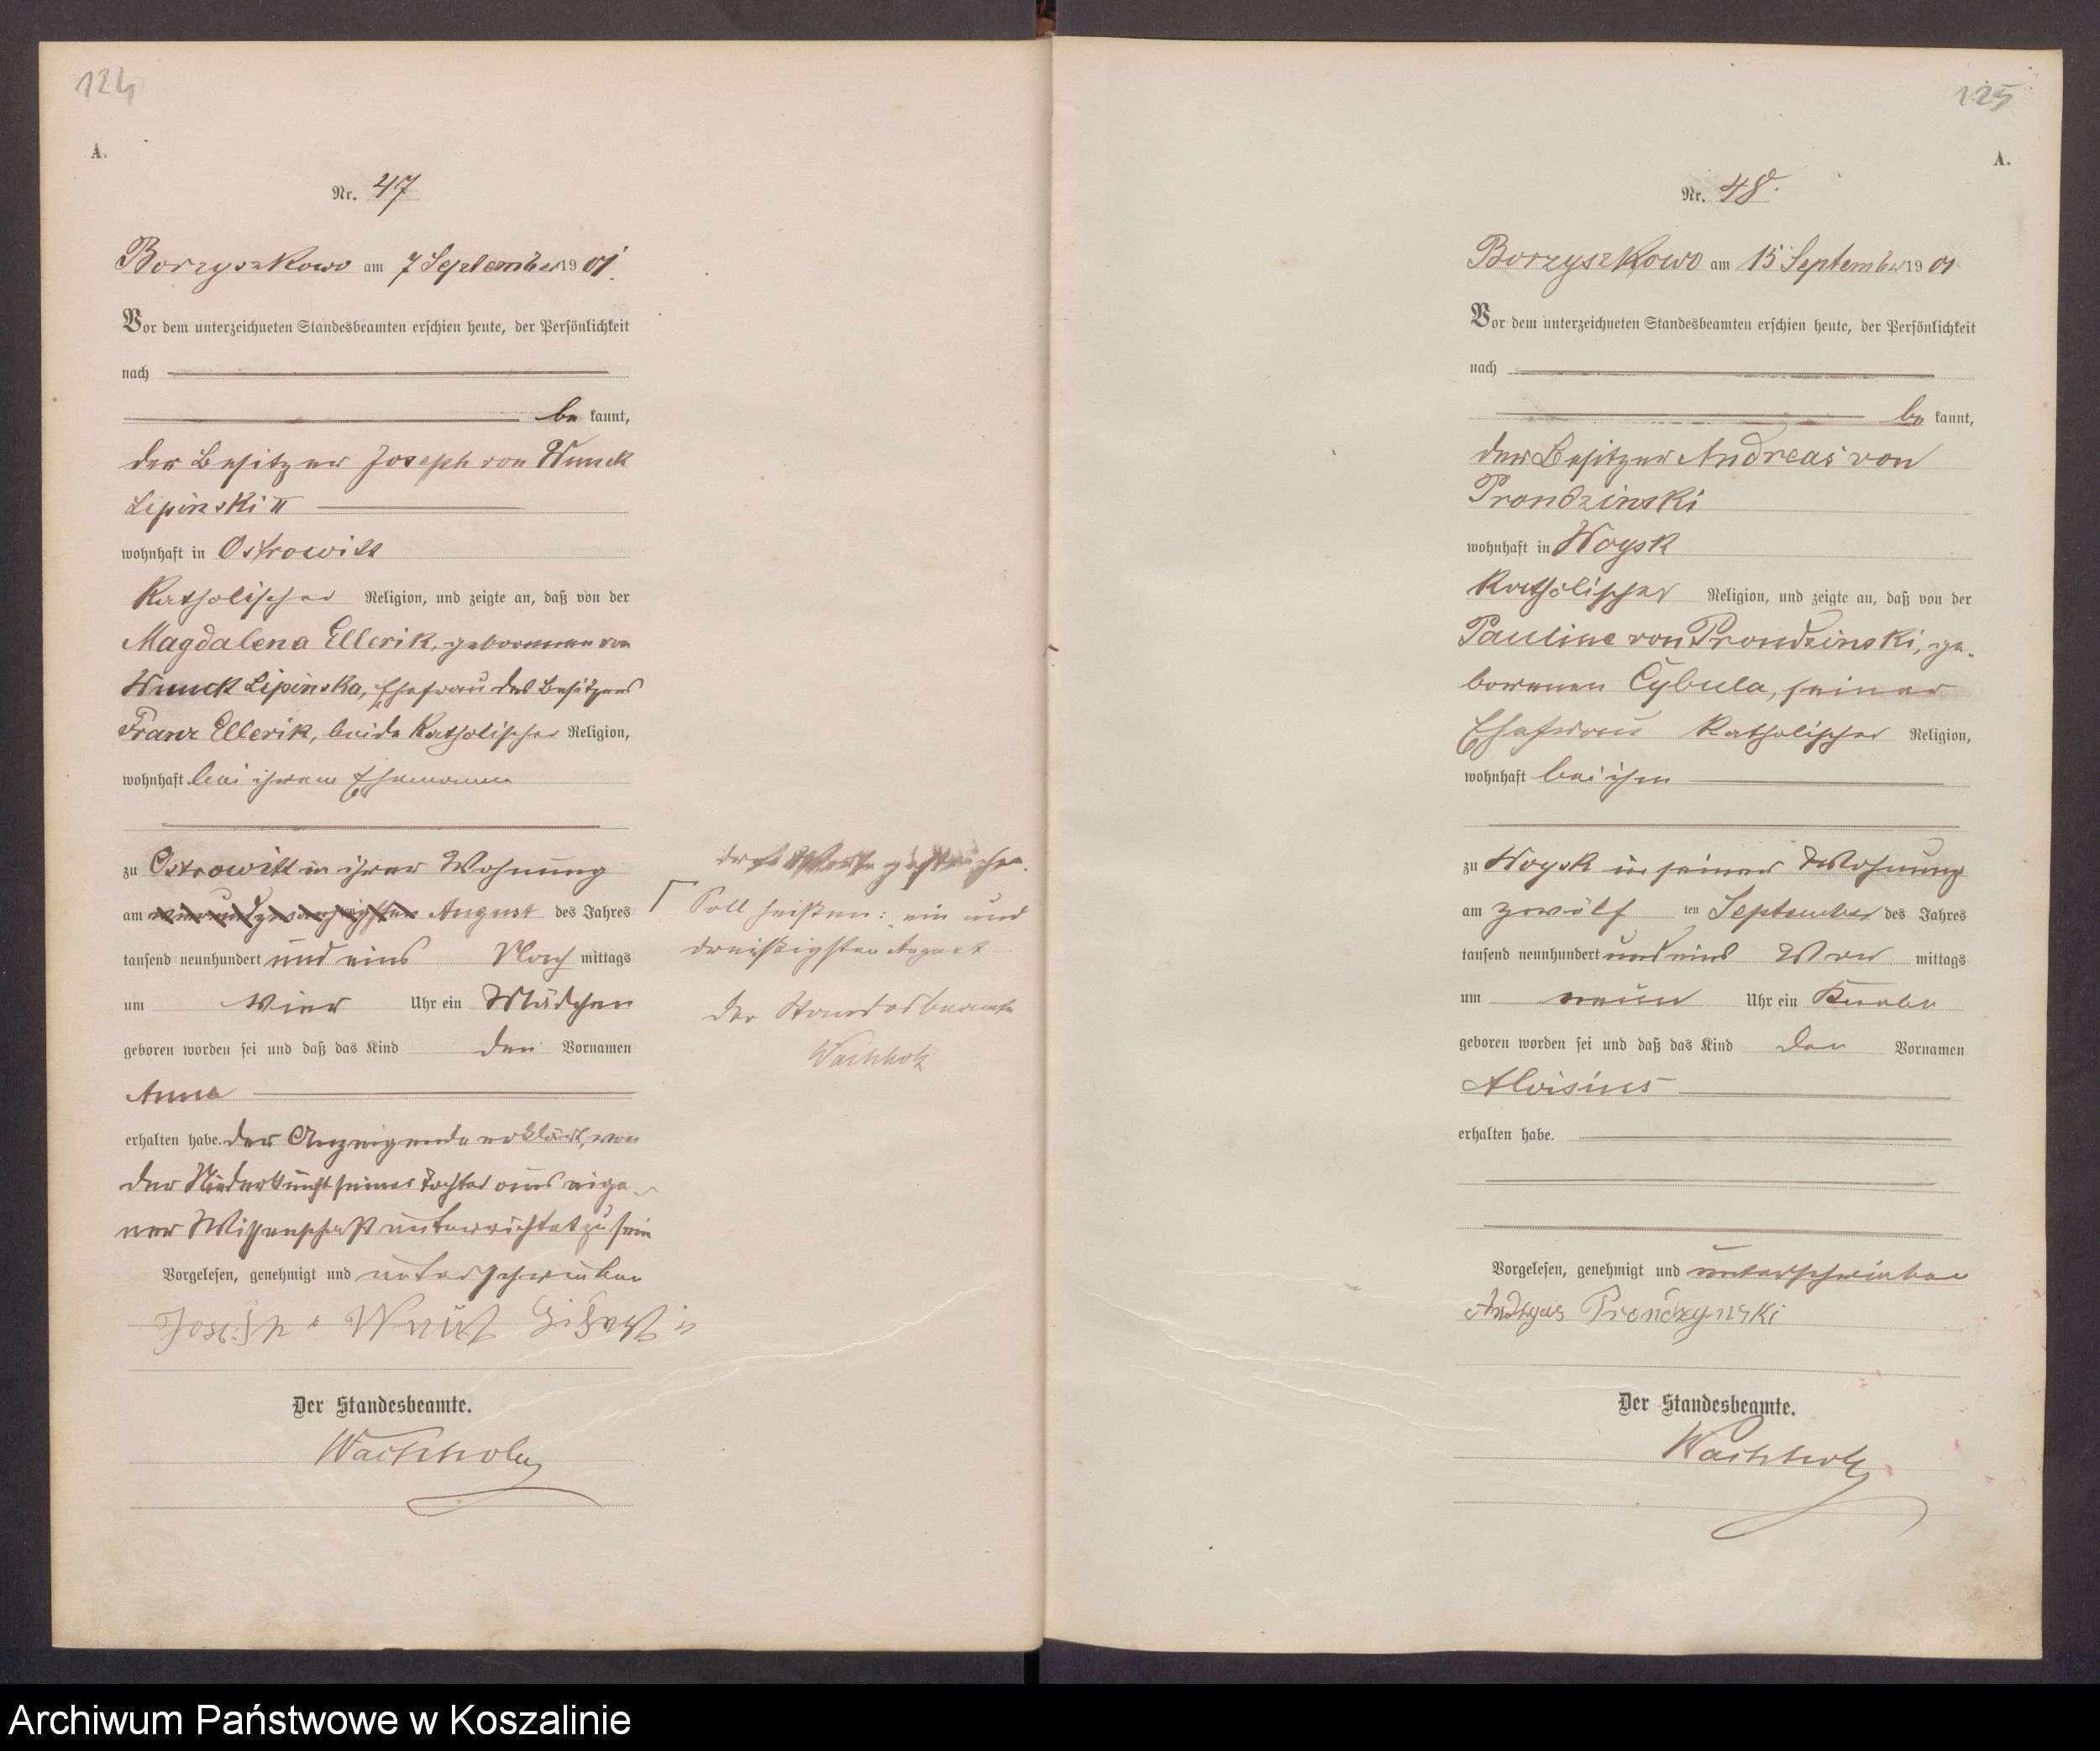 124
A.
Nr. 47
Borzyszkowo am 7 September 1901.
Vor dem unterzeichneten Standesbeamten erschien heute, der Persönlichkeit
nach
be kannt,
der Besitzer Joseph von Wnuck
Lipinski II
wohnhaft in Ostrowitt
Katholischer Religion, und zeigte an, daß von der
Magdalena Ellerik, geborenen von
Wnuck Lipinska, Ehefrau des Besitzers
Franz Ellerik, beide Katholischer Religion,
wohnhaft bei ihrem Ehemanne
zu Ostrowitt in ihrer Wohnung
am August des Jahres
tausend neunhundert und eins Nach mittags
um vier Uhr ein Mädchen
geboren worden sei und daß das Kind den Vornamen
Anna
erhalten habe. Der Anzeigende erklärt, von
der Niederkunft seiner Tochter aus eige-
ner Wissenschaft unterrichtet zu sein
Vorgelesen, genehmigt und unterschrieben
Joseph v Wnuk Lipinski
Der Standesbeamte.
Wachholz
drei Worte gestrichen.
Soll heißen: ein und
dreißigsten August
Der Standesbeamte
Wachholz
125
A.
Nr. 48.
Borzyszkowo am 15 September 1901
Vor dem unterzeichneten Standesbeamten erschien heute, der Persönlichkeit
nach
be kannt,
der Besitzer Andreas von
Prondzinski
wohnhaft in Woysk
Katholischer Religion, und zeigte an, daß von der
Pauline von Prondzinski, ge-
borenen Cybula, seiner
Ehefrau Katholischer Religion,
wohnhaft bei ihm
zu Woysk in seiner Wohnung
am zwölf ten September des Jahres
tausend neunhundert und eins Vor mittags
um neun Uhr ein Knabe
geboren worden sei und daß das Kind den Vornamen
Aloisius
erhalten habe.
Vorgelesen, genehmigt und unterschrieben
Prondzynski
Der Standesbeamte.
Wachholz
Archiwum Państwowe w Koszalinie